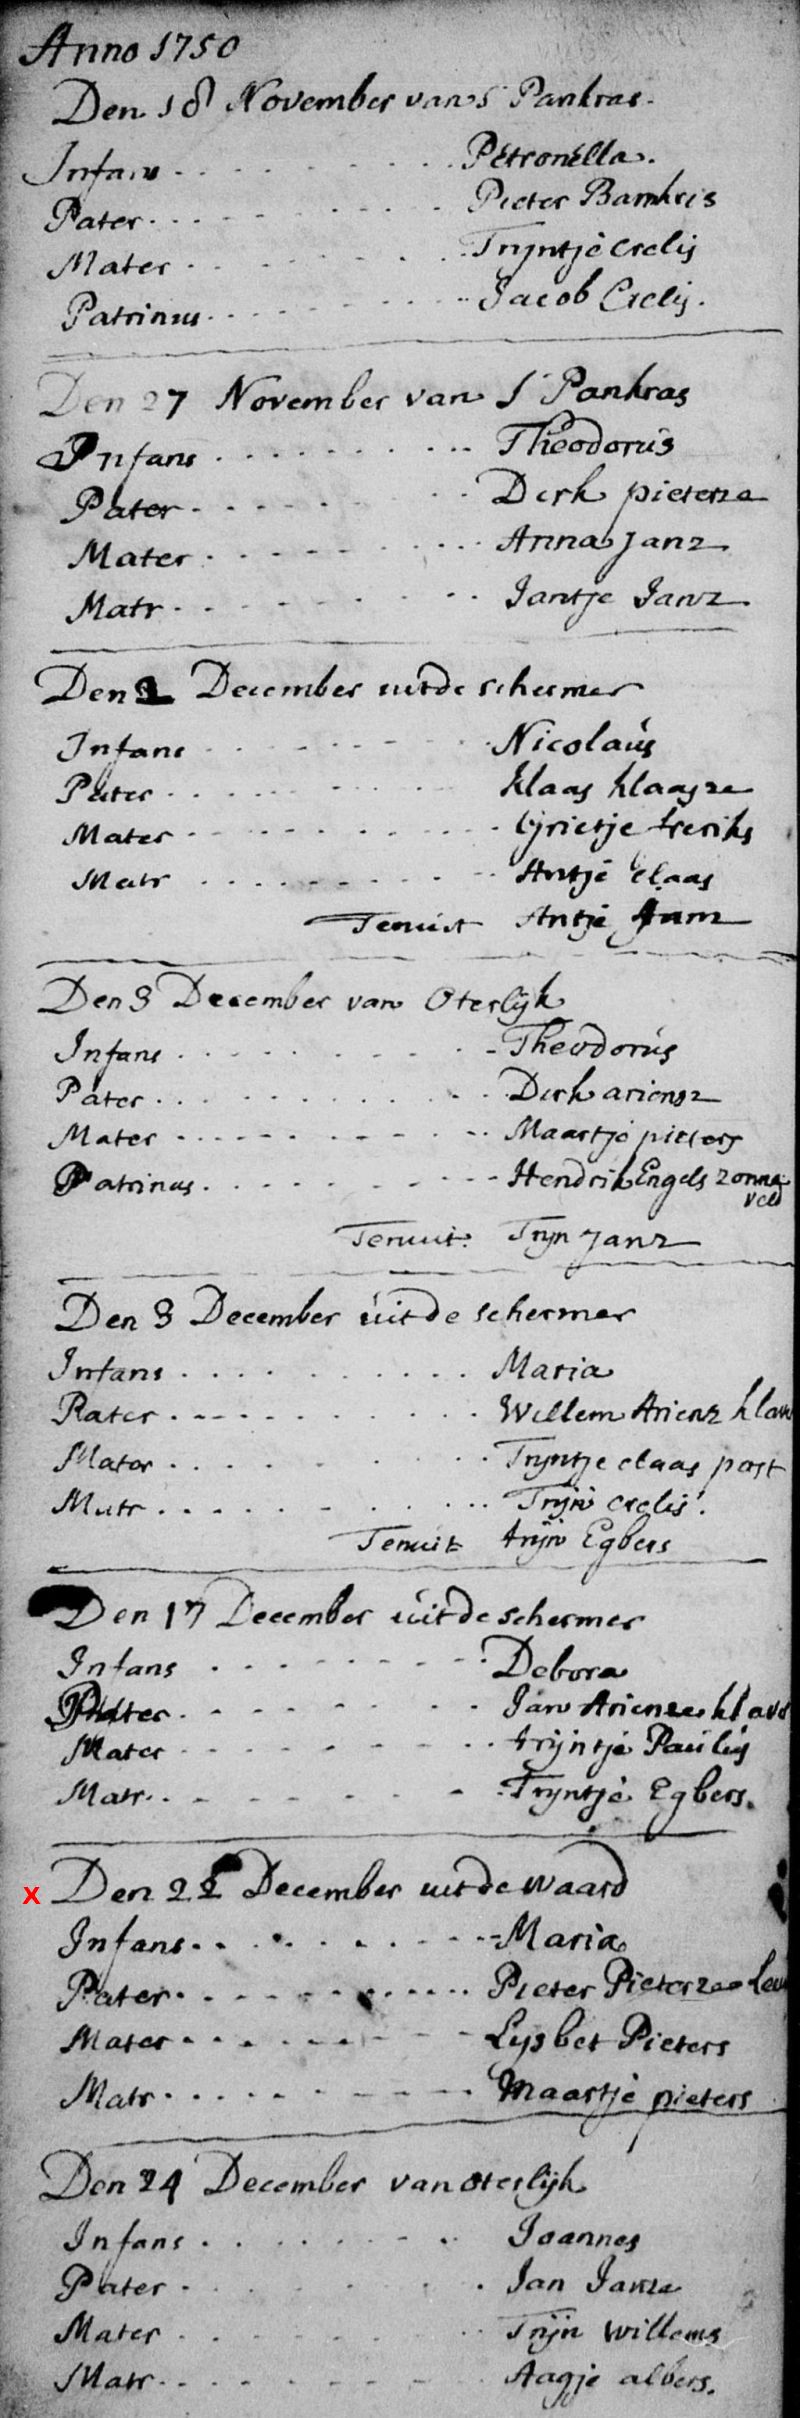 Anno 1750
Den 18 November van S Pankras.
Infans Petronella.
Pater Pieter
Mater Tryntje Crelis
Patrinus Jacob Crelis.
Den 27 November van S Pankras
Infans Theodorus
Pater Dirk pieterze
Mater Anna Janz
Matr Jantje Janz
Den 2 December uit de schermer
Infans Nicolaus
Pater klaas klaasze
Mater Grietje freriks
Matr Antje Claas
Tenuit Antje Janz
Den 3 December van Oterlijk
Infans Theodorus
Pater Dirk ariensz
Mater Maartje pieters
Patrinus Hendrik Engels zonne
veld
Tenuit Trijn Janz
Den 3 December uit de schermer
Infans Maria
Pater Willem Arienz klau
Mater Tryntje claas post
Matr Trijn crelis.
Tenuit trijn Egbers
Den 17 December uit de schermer
Infans Debora
Pater Jan Arienze klav
Mater trijntje Paulus
Matr Tryntje Egbers.
x Den 22 December uit de waard
Infans Maria
Pater Pieter Pieterze
Mater Lysbet Pieters
Matr Maartje pieters
Den 24 December van oterlijk
Infans Joannes
Pater Jan Janze
Mater Trijn willems
Matr Aagje albers.